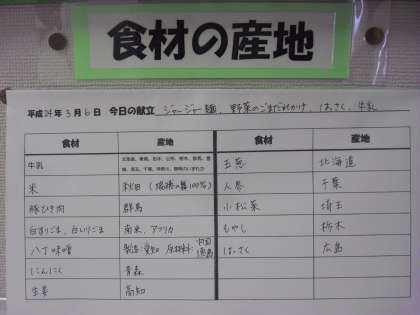 食材の産地
平成24年3月6日 今日の献立 ジャージャー麺、野菜のごまだれかけ、はっさく、牛乳
食材 産地 食材 産地
牛乳 玉葱 北海道
米 秋田 人参 千葉
豚ひき肉 群馬 小松菜 埼玉
白すりごま、白いりごま 南米、アフリカ もやし 栃木
八丁味噌 製造:愛知 原材料 はっさく 広島
にんにく 青森
生姜 高知